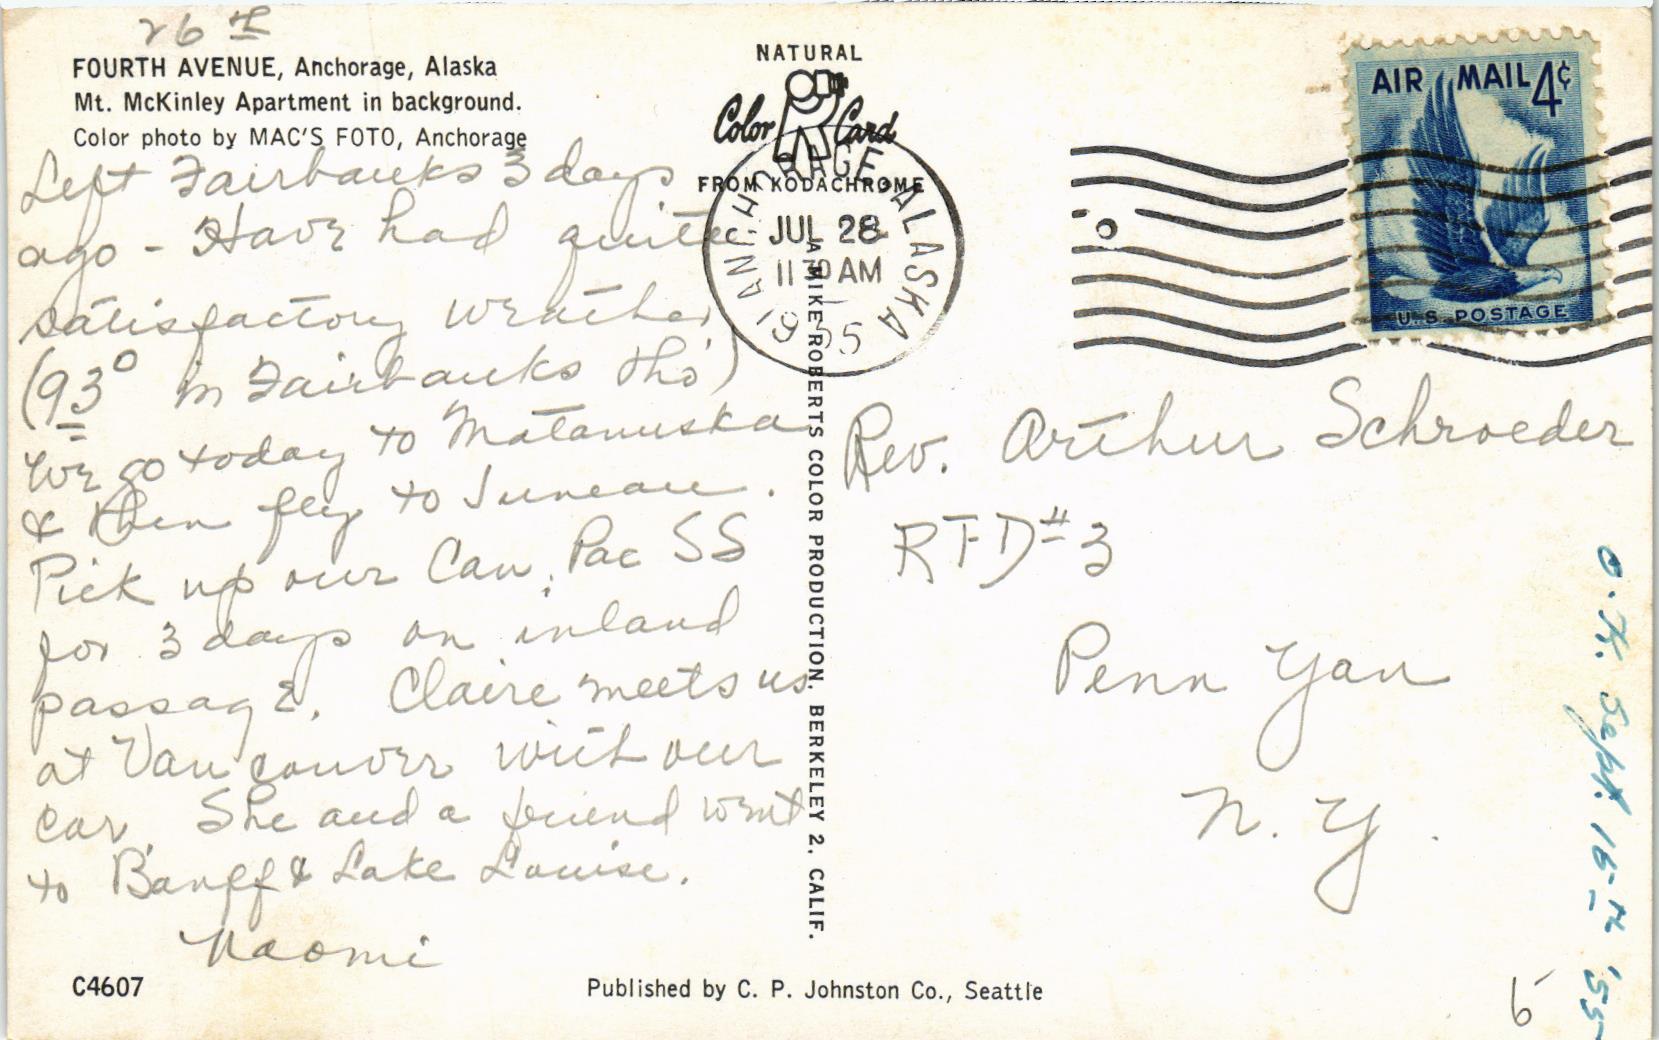 26th
FOURTH AVENUE, Anchorage, Alaska
Mt. McKinley Apartment in background.
Color photo by MAC'S FOTO, Anchorage
Left Fairbanks 3 days
ago - Have had quite
satisfactory weather
(93° in Fairbanks tho')
We go today to Matanuska
& then fly to Juneau.
Pick up our Can. Pac SS
for 3 days on inland
passage. Claire meets us
at Vancouver with our
car. She and a friend went
to Banff & Lake Louise.
Naomi
C4607
NATURAL
Color Card
FROM KODACHROME
A MIKE ROBERTS COLOR PRODUCTION. BERKELEY 2, CALIF.
Published by C. P. Johnston Co., Seattle
ANCHORAGE, ALASKA
JUL 28
11 30 AM
1955
AIR MAIL 4¢
U.S. POSTAGE
Rev. Arthur Schroeder
RFD #3
Penn Yan
N. Y.
O.K. Sept. 16th '55
5